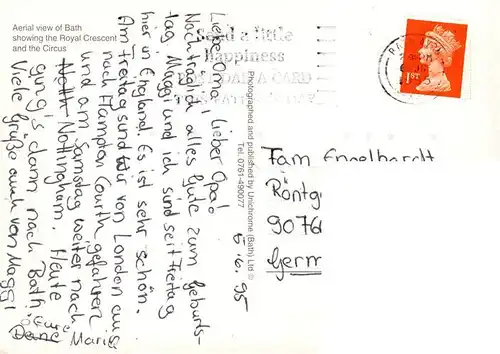 Aerial view of Bath
showing the Royal Crescent
and the Circus
Liebe Oma, lieber Opa!
Nachträglich alles Gute zum Geburts-
tag. Muggi und ich sind seit Freitag
hier in England. Es ist sehr schön.
Am Freitag sind wir von London aus
nach Hampton Courth gefahren
und am Samstag weiter nach
Noth Nottingham. Heute
ging's dann nach Bath.
Viele Grüße auch von Muggi
Deine Eure Maria
5.6.95
Photographed and published by Unichrome (Bath) Ltd ©
Tel: 0761-490077
send a little
happiness
POST A CARD
1ST
Fam Engelhardt
Röntg
9076
Germ